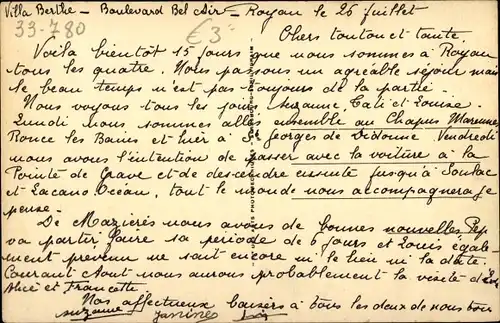 Villa Berthe - Boulevard Bel Air - Royan le 26 juillet
33-780 €3
Chers tonton et tante,
Voilà bientôt 15 jours que nous sommes à Royan
tous les quatre. Nous passons un agréable séjour mais
le beau temps n'est pas toujours de la partie.
Nous voyons tous les jours Suzanne, Cali et Louise.
Lundi nous sommes allés ensemble au Chapus Marennes
Ronce les Bains et hier à St Georges de Didonne. Vendredi
nous avons l'intention de passer avec la voiture à la
Pointe de Grave et de descendre ensuite jusqu'à Soulac
et Lacanau Océan, tout le monde nous accompagnera je
pense.
De Mazières nous avons de bonnes nouvelles, Pep
va partir faire sa période de 6 jours et Louis égale-
ment prévenu ne sait encore ni le lieu ni la date.
Courant Août nous aurons probablement la visite d'
Alice et Francette
Nos affectueux baisers à tous les deux de nous tous
Suzanne